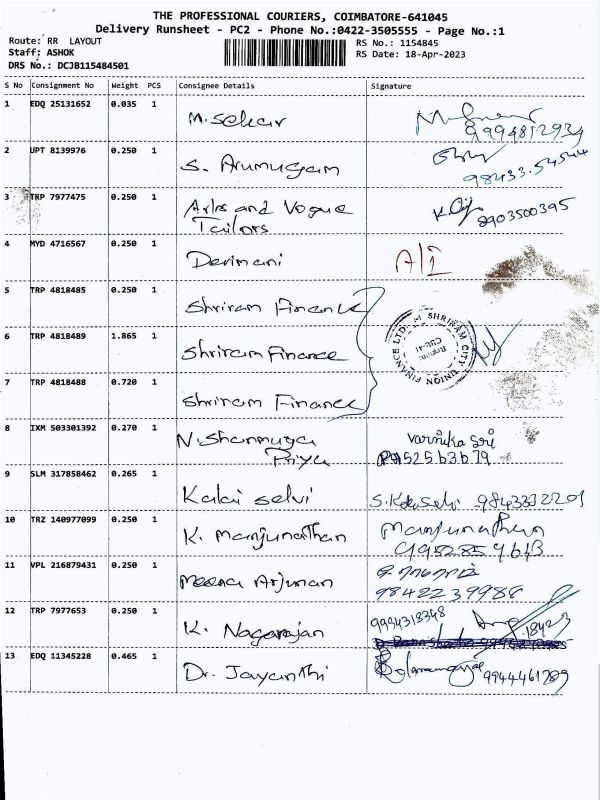 THE PROFESSIONAL COURIERS, COIMBATORE-641045
Delivery Runsheet - PC2 - Phone No.:0422-3505555 - Page No.:1
Route: RR LAYOUT
RS No.: 1154845
Staff: ASHOK
RS Date: 18-Apr-2023
DRS No.: DCJB115484501
S No Consignment No Weight PCS Consignee Details Signature
1 EDQ 25131652 0.035 1 M. Sekar
9994812934
2 UPT 8139976 0.250 1 S. Arumugam
98433
3 TRP 7977475 0.250 1 Arts and Vogue
Tailors
8903500395
4 MYD 4716567 0.250 1 Derimani
5 TRP 4818485 0.250 1 Shriram Finance
SHRIRAM CITY UNION FINANCE LTD.
6 TRP 4818489 1.865 1 Shriram Finance
7 TRP 4818488 0.720 1 Shriram Finance
8 IXM 503301392 0.270 1 N. Shanmuga
Priya
Varnika Sri
9 SLM 317858462 0.265 1 Kalai Selvi
10 TRZ 140977099 0.250 1 K. Manjunathan Manjunathan
11 VPL 216879431 0.250 1 Meena Arjunan
9842239988
12 TRP 7977653 0.250 1 K. Nagarajan
9994318348
13 EDQ 11345228 0.465 1 Dr. Jayanthi
9944461789